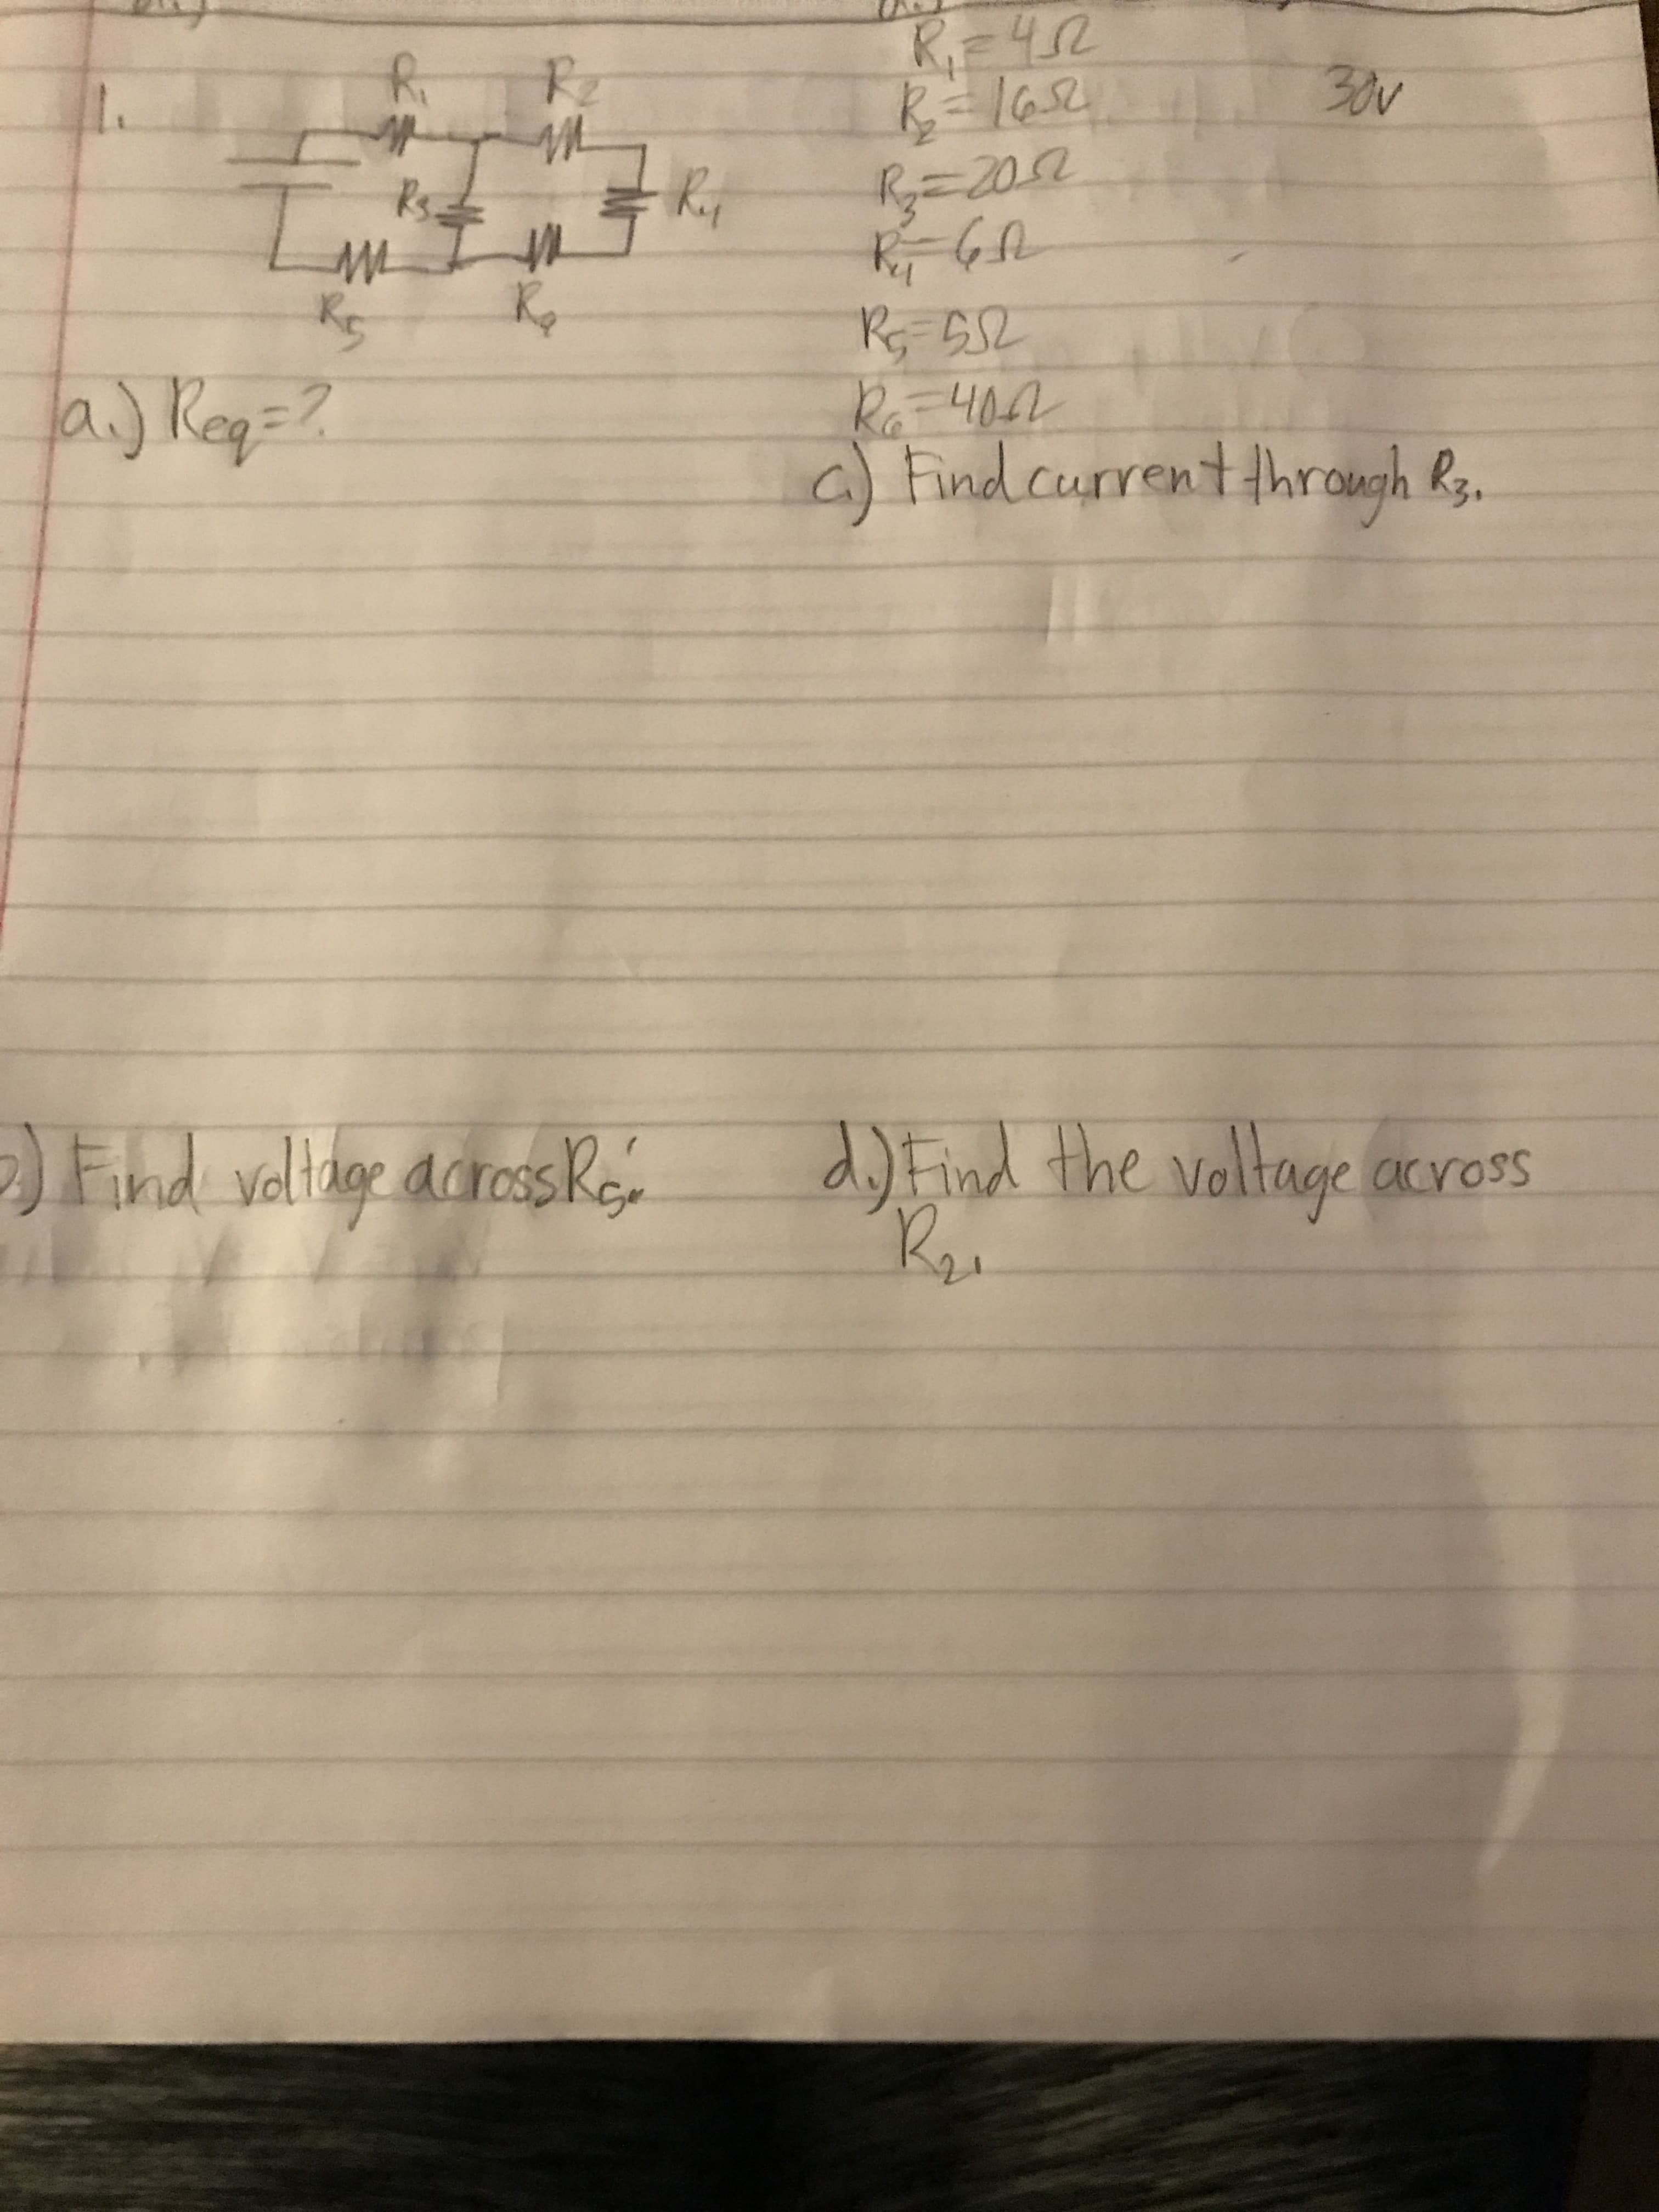 1.
R₁ R₂
R₃ R₄
R₅ R₆
R₁=4Ω
R₂=16Ω 30v
R₃=20Ω
R₄=6Ω
R₅=5Ω
R₆=40Ω
a.) Req=?
c.) Find current through R₃.
b.) Find voltage across R₅.
d.) Find the voltage across
R₂.